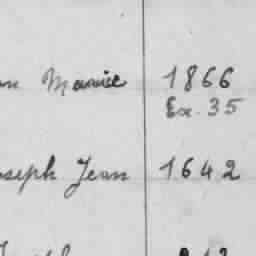 Maurice 1866
Ex. 35
Joseph Jean 1642